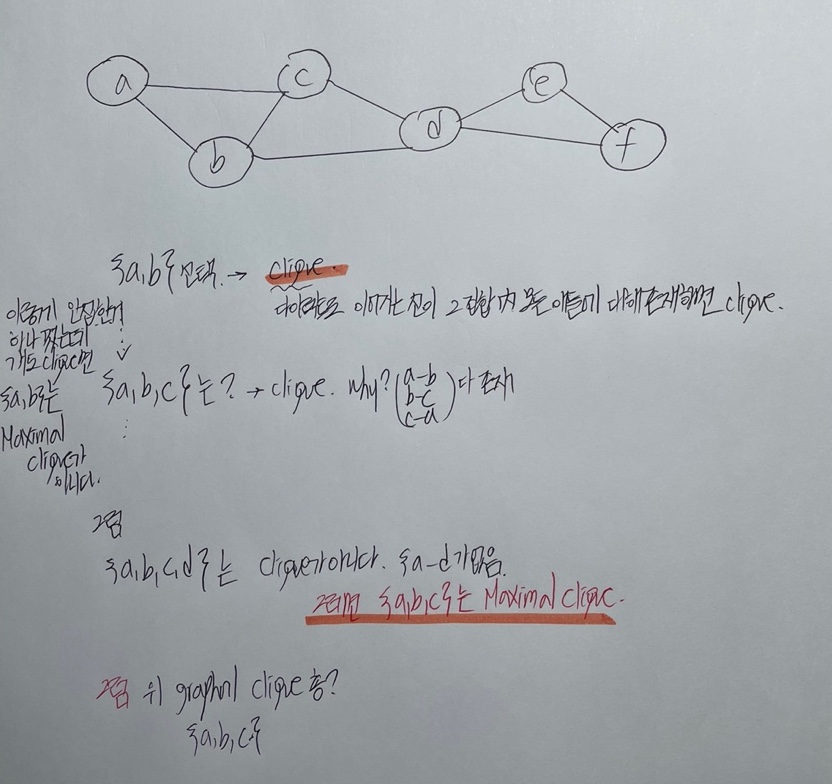 a
c
b
d
e
f
{a,b} 선택. → clique.
다이렉트로 이어지는 선이 그 집합 내 모든 애들에 대해 존재하면 clique.
이렇게 인접한거
하나 찍는데
걔도 clique면
{a,b}는
Maximal
clique가
아니다.
{a,b,c}는? → clique. Why? (a-b b-c c-a) 다 존재
그럼
{a,b,c,d}는 clique가 아니다. {a-d가 없음.
그러면 {a,b,c}는 Maximal clique.
그럼 위 graph에 clique 총?
{a,b,c}